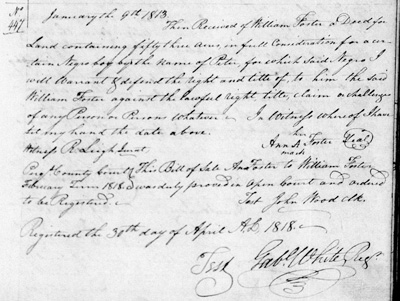 No
447
January the 9th 1813
Then Received of William Foster a Deed for
Land containing fifty three Acres, in full Consideration for a cer
tain Negro boy by the Name of Peter, for which said Negro I
will Warrant & defend the right and title of, to him the said
William Foster against the lawful right, title, claim or challenge
of any Person or Persons whatever. In Witness whereof I have
set my hand the date above.
her
Ann A Foster Seal
mark
Witness R. Leigh Jurat
County Court This Bill of Sale Ann Foster to William Foster
February Term 1818 was duly proved in Open Court and ordered
to be Registered.
Test John Wood Clk.
Registered the 30th day of April A.D. 1818.
Test Gabl. White Regr.